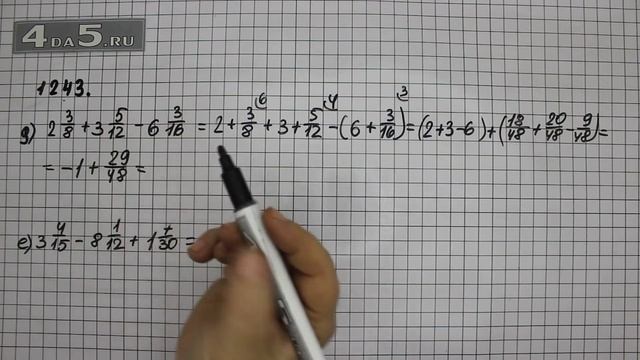 4DA5.RU
1243.
д) 2 3/8 + 3 5/12 - 6 3/16 = 2 + 3/8 ⁶ + 3 + 5/12 ⁴ - (6 + 3/16 ³) = (2+3-6) + (18/48 + 20/48 - 9/48) =
= -1 + 29/48 =
е) 3 4/15 - 8 1/12 + 1 7/30 =